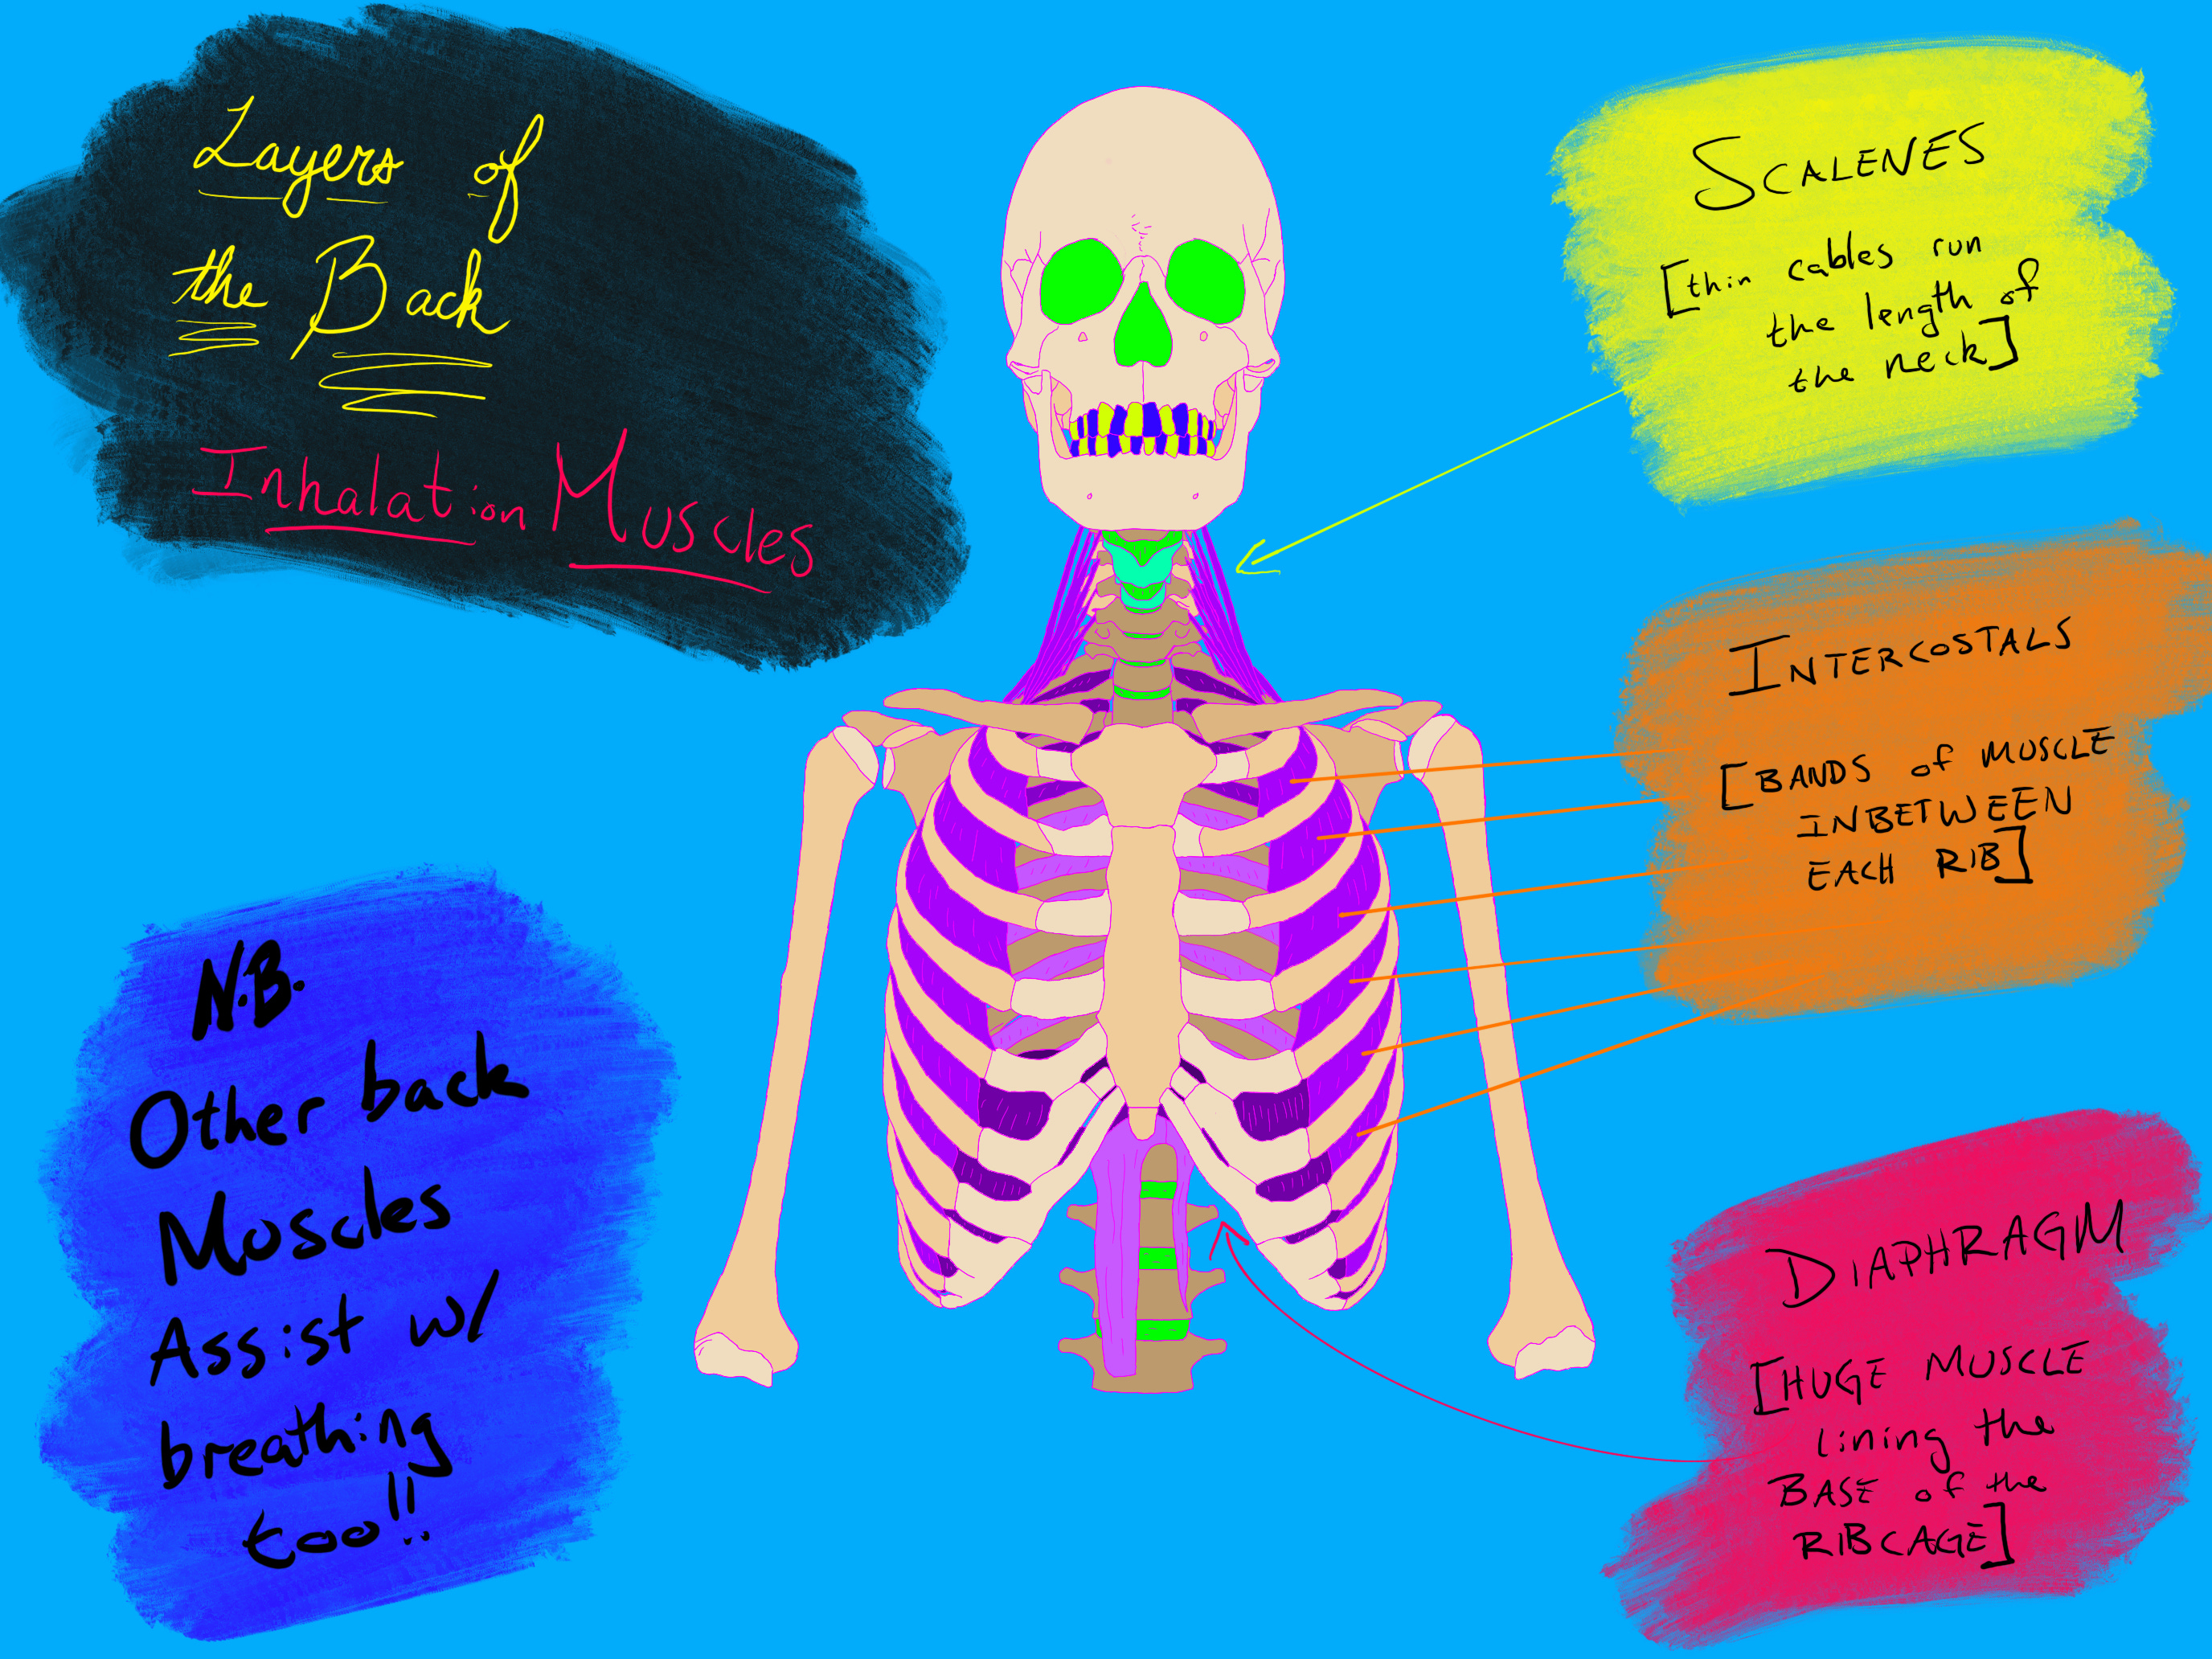 Layers of
the Back
Inhalation Muscles
SCALENES
[thin cables run
the length of
the neck]
INTERCOSTALS
[BANDS of MUSCLE
INBETWEEN
EACH RIB]
N.B.
Other back
Muscles
Assist w/
breathing
too!!
DIAPHRAGM
[HUGE MUSCLE
lining the
BASE of the
RIBCAGE]